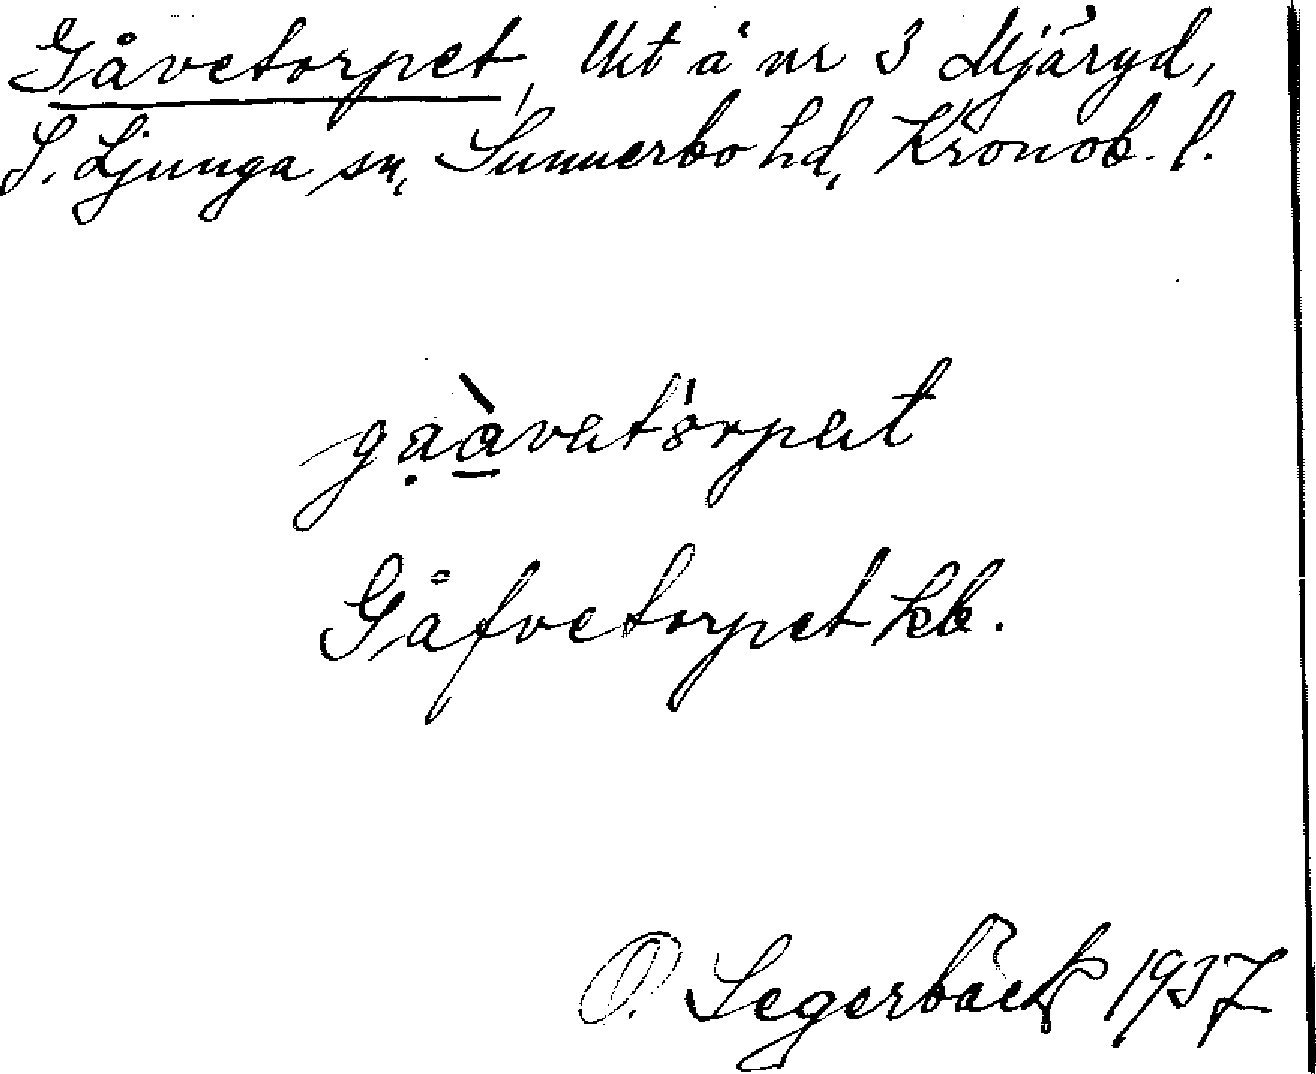 Gåvetorpet, Utt å nr 3 Mjäryd,
S. Ljunga sn, Sunnerbo hd, Kronob. l.
gạàvatòrpat
Gåfvetorpet kb.
O. Segerbäck 1937